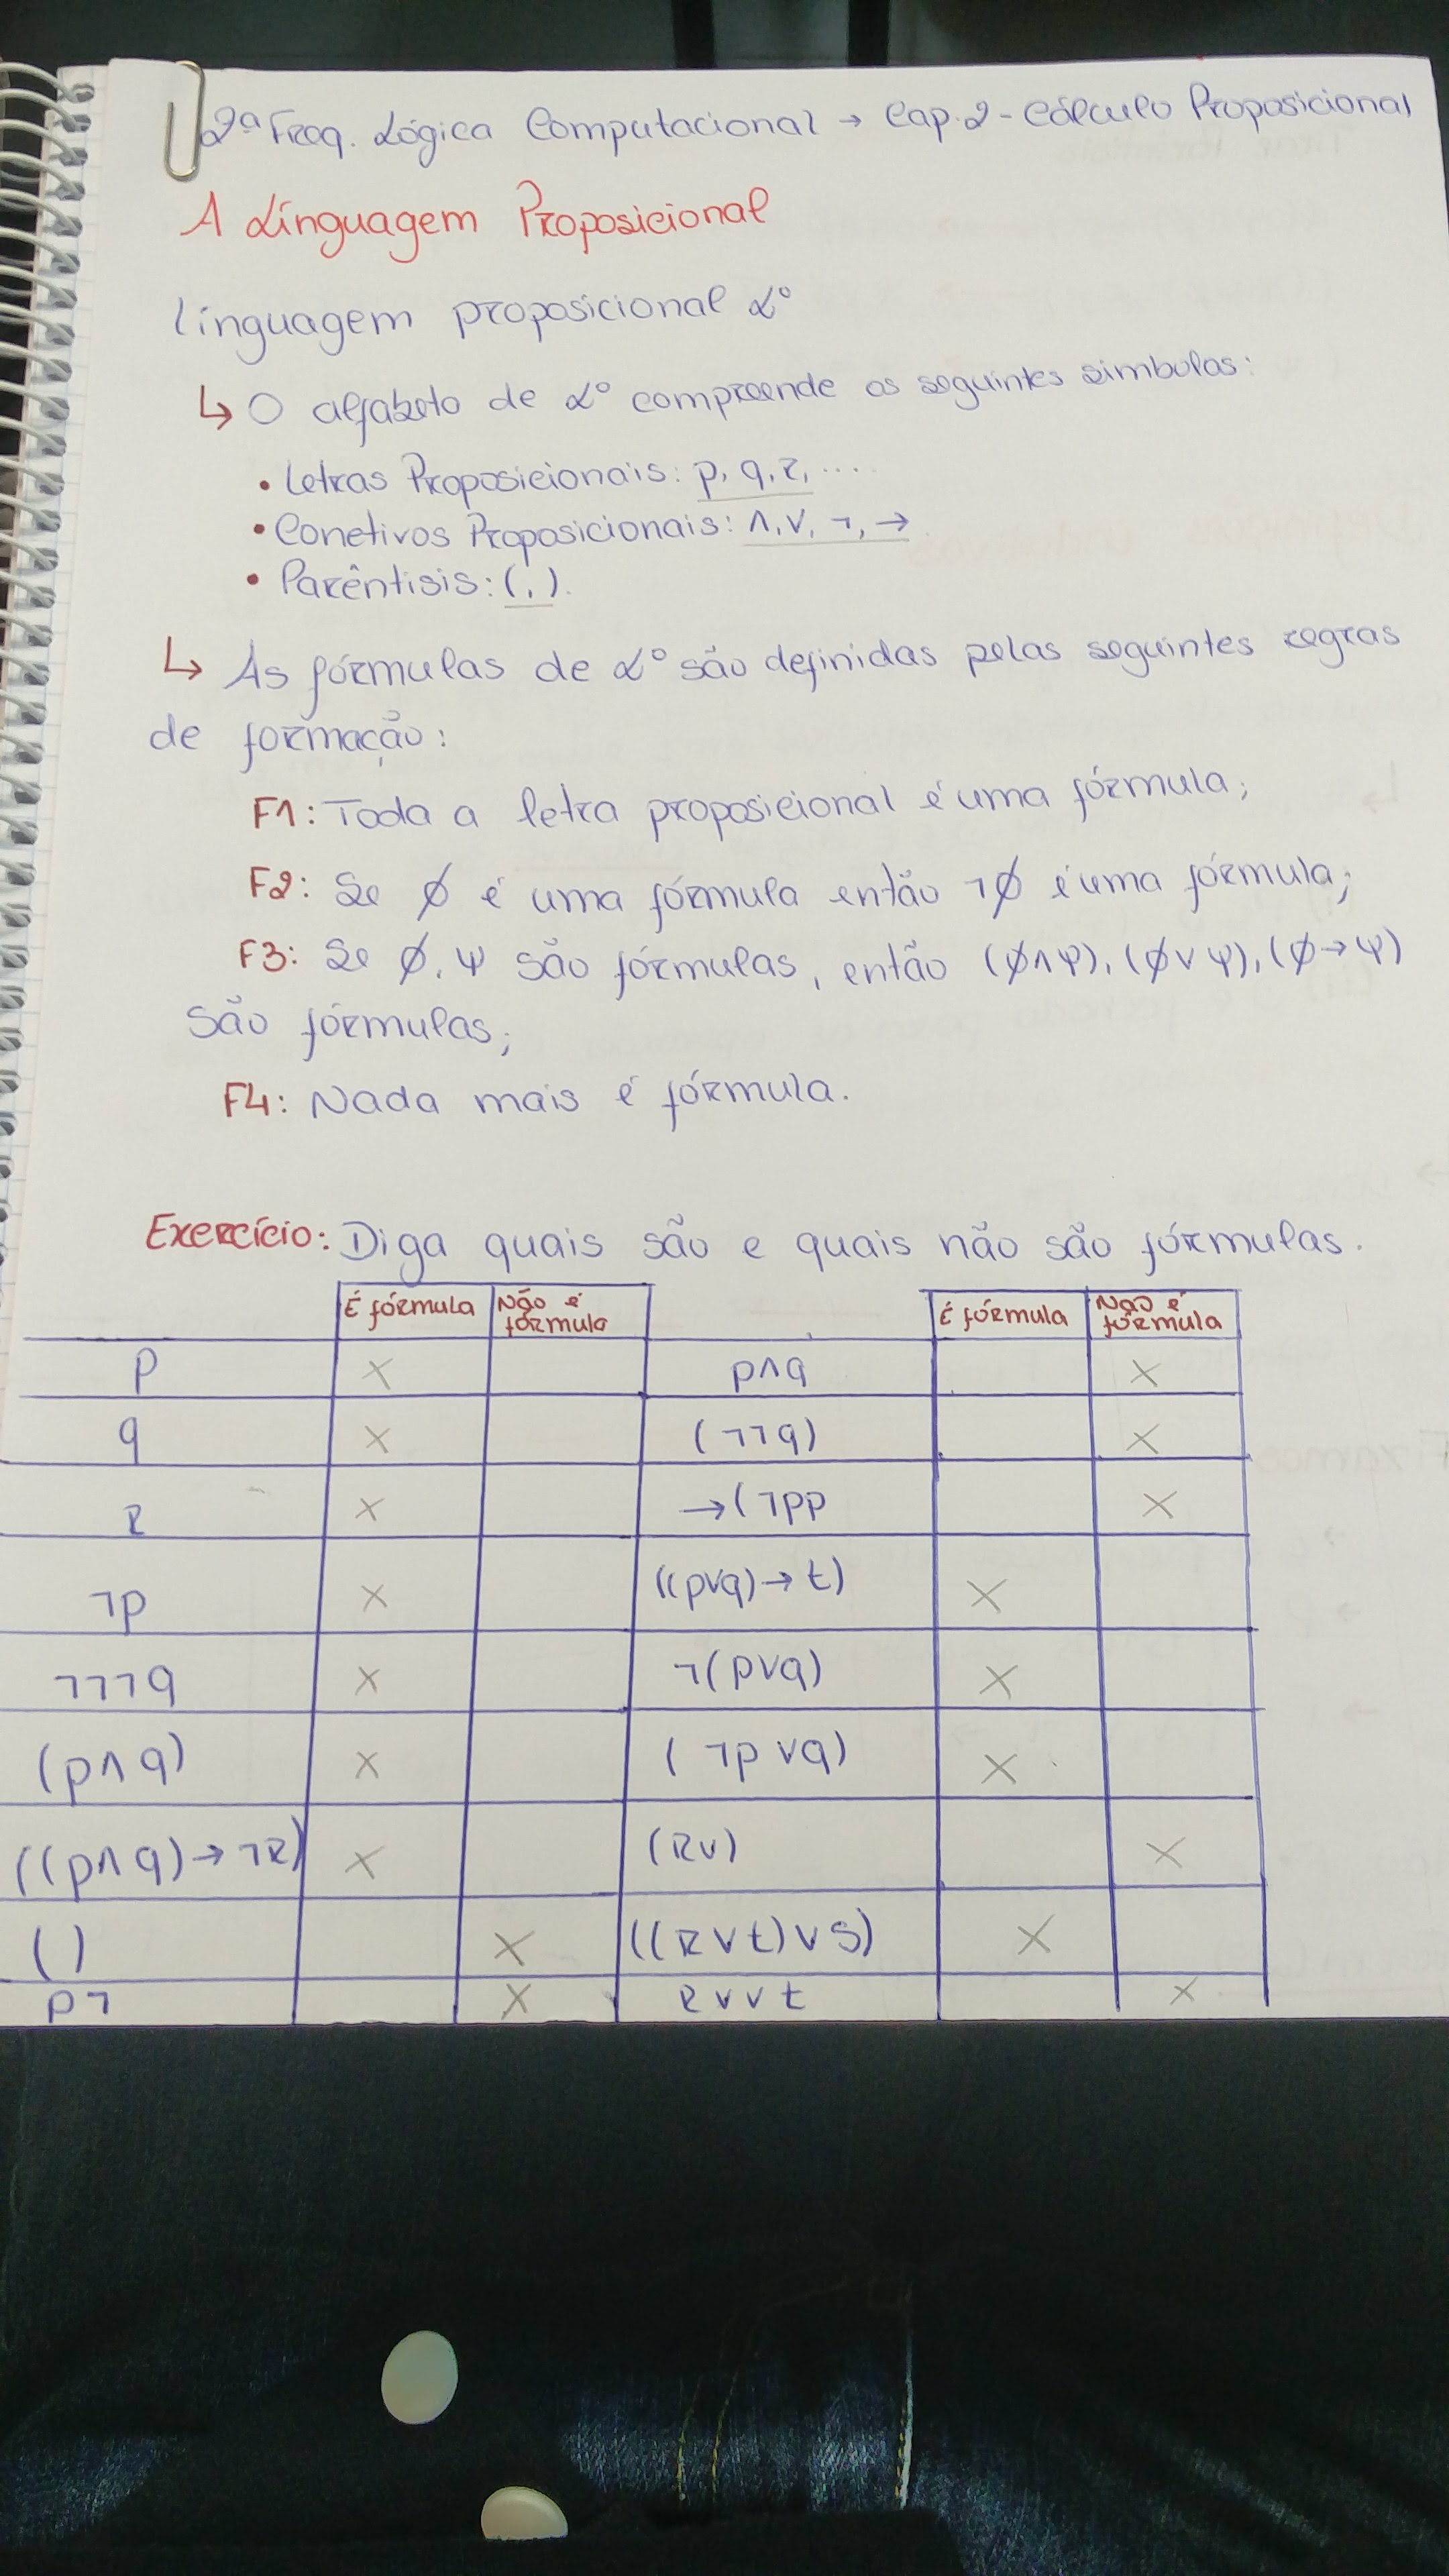 2ª Freq. Lógica Computacional → Cap. 2 - Cálculo Proposicional
A Linguagem Proposicional
linguagem proposicional L°
↳ O alfabeto de L° compreende os seguintes simbolos:
• Letras Proposicionais: p, q, r, ....
• Conetivos Proposicionais: ∧, ∨, ¬, →
• Parêntisis: (, ).
↳ As fórmulas de L° são definidas pelas seguintes regras
de formação:
F1: Toda a letra proposicional é uma fórmula;
F2: Se ϕ é uma fórmula então ¬ϕ é uma fórmula;
F3: Se ϕ, ψ são fórmulas, então (ϕ∧ψ), (ϕ∨ψ), (ϕ→ψ)
são fórmulas;
F4: Nada mais é fórmula.
Exercício: Diga quais são e quais não são fórmulas.
É fórmula Não é fórmula É fórmula Não é fórmula
p X p∧q X
q X (¬¬q) X
R X →(¬pp X
¬p X ((p∨q)→t) X
¬¬¬q X ¬(p∨q) X
(p∧q) X (¬p∨q) X
((p∧q)→¬R) X (R∨) X
() X ((R∨t)∨S) X
p¬ X R∨∨t X